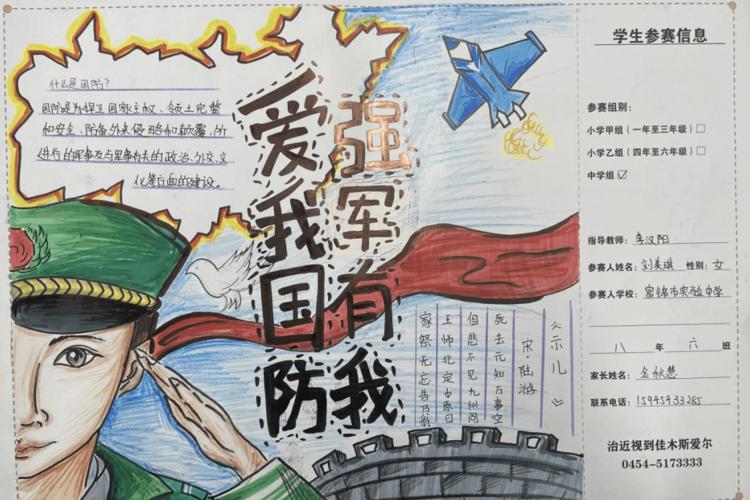 什么是国防?
国防是为捍卫国家主权、领土完整
和安全,防备外来侵略和颠覆,所
进行的军事及与军事有关的政治、外交、文
化等方面的建设。
爱我国防
强军有我
《示儿》
宋·陆游
死去元知万事空
但悲不见九州同
王师北定中原日
家祭无忘告乃翁
学生参赛信息
参赛组别:
小学甲组(一年至三年级)□
小学乙组(四年至六年级)□
中学组☑
指导教师:汉阳
参赛人姓名:刘美琪 性别:女
参赛人学校:富锦市实验中学
八 年 六 班
家长姓名:金秋慧
联系电话:15945433285
治近视到佳木斯爱尔
0454-5173333